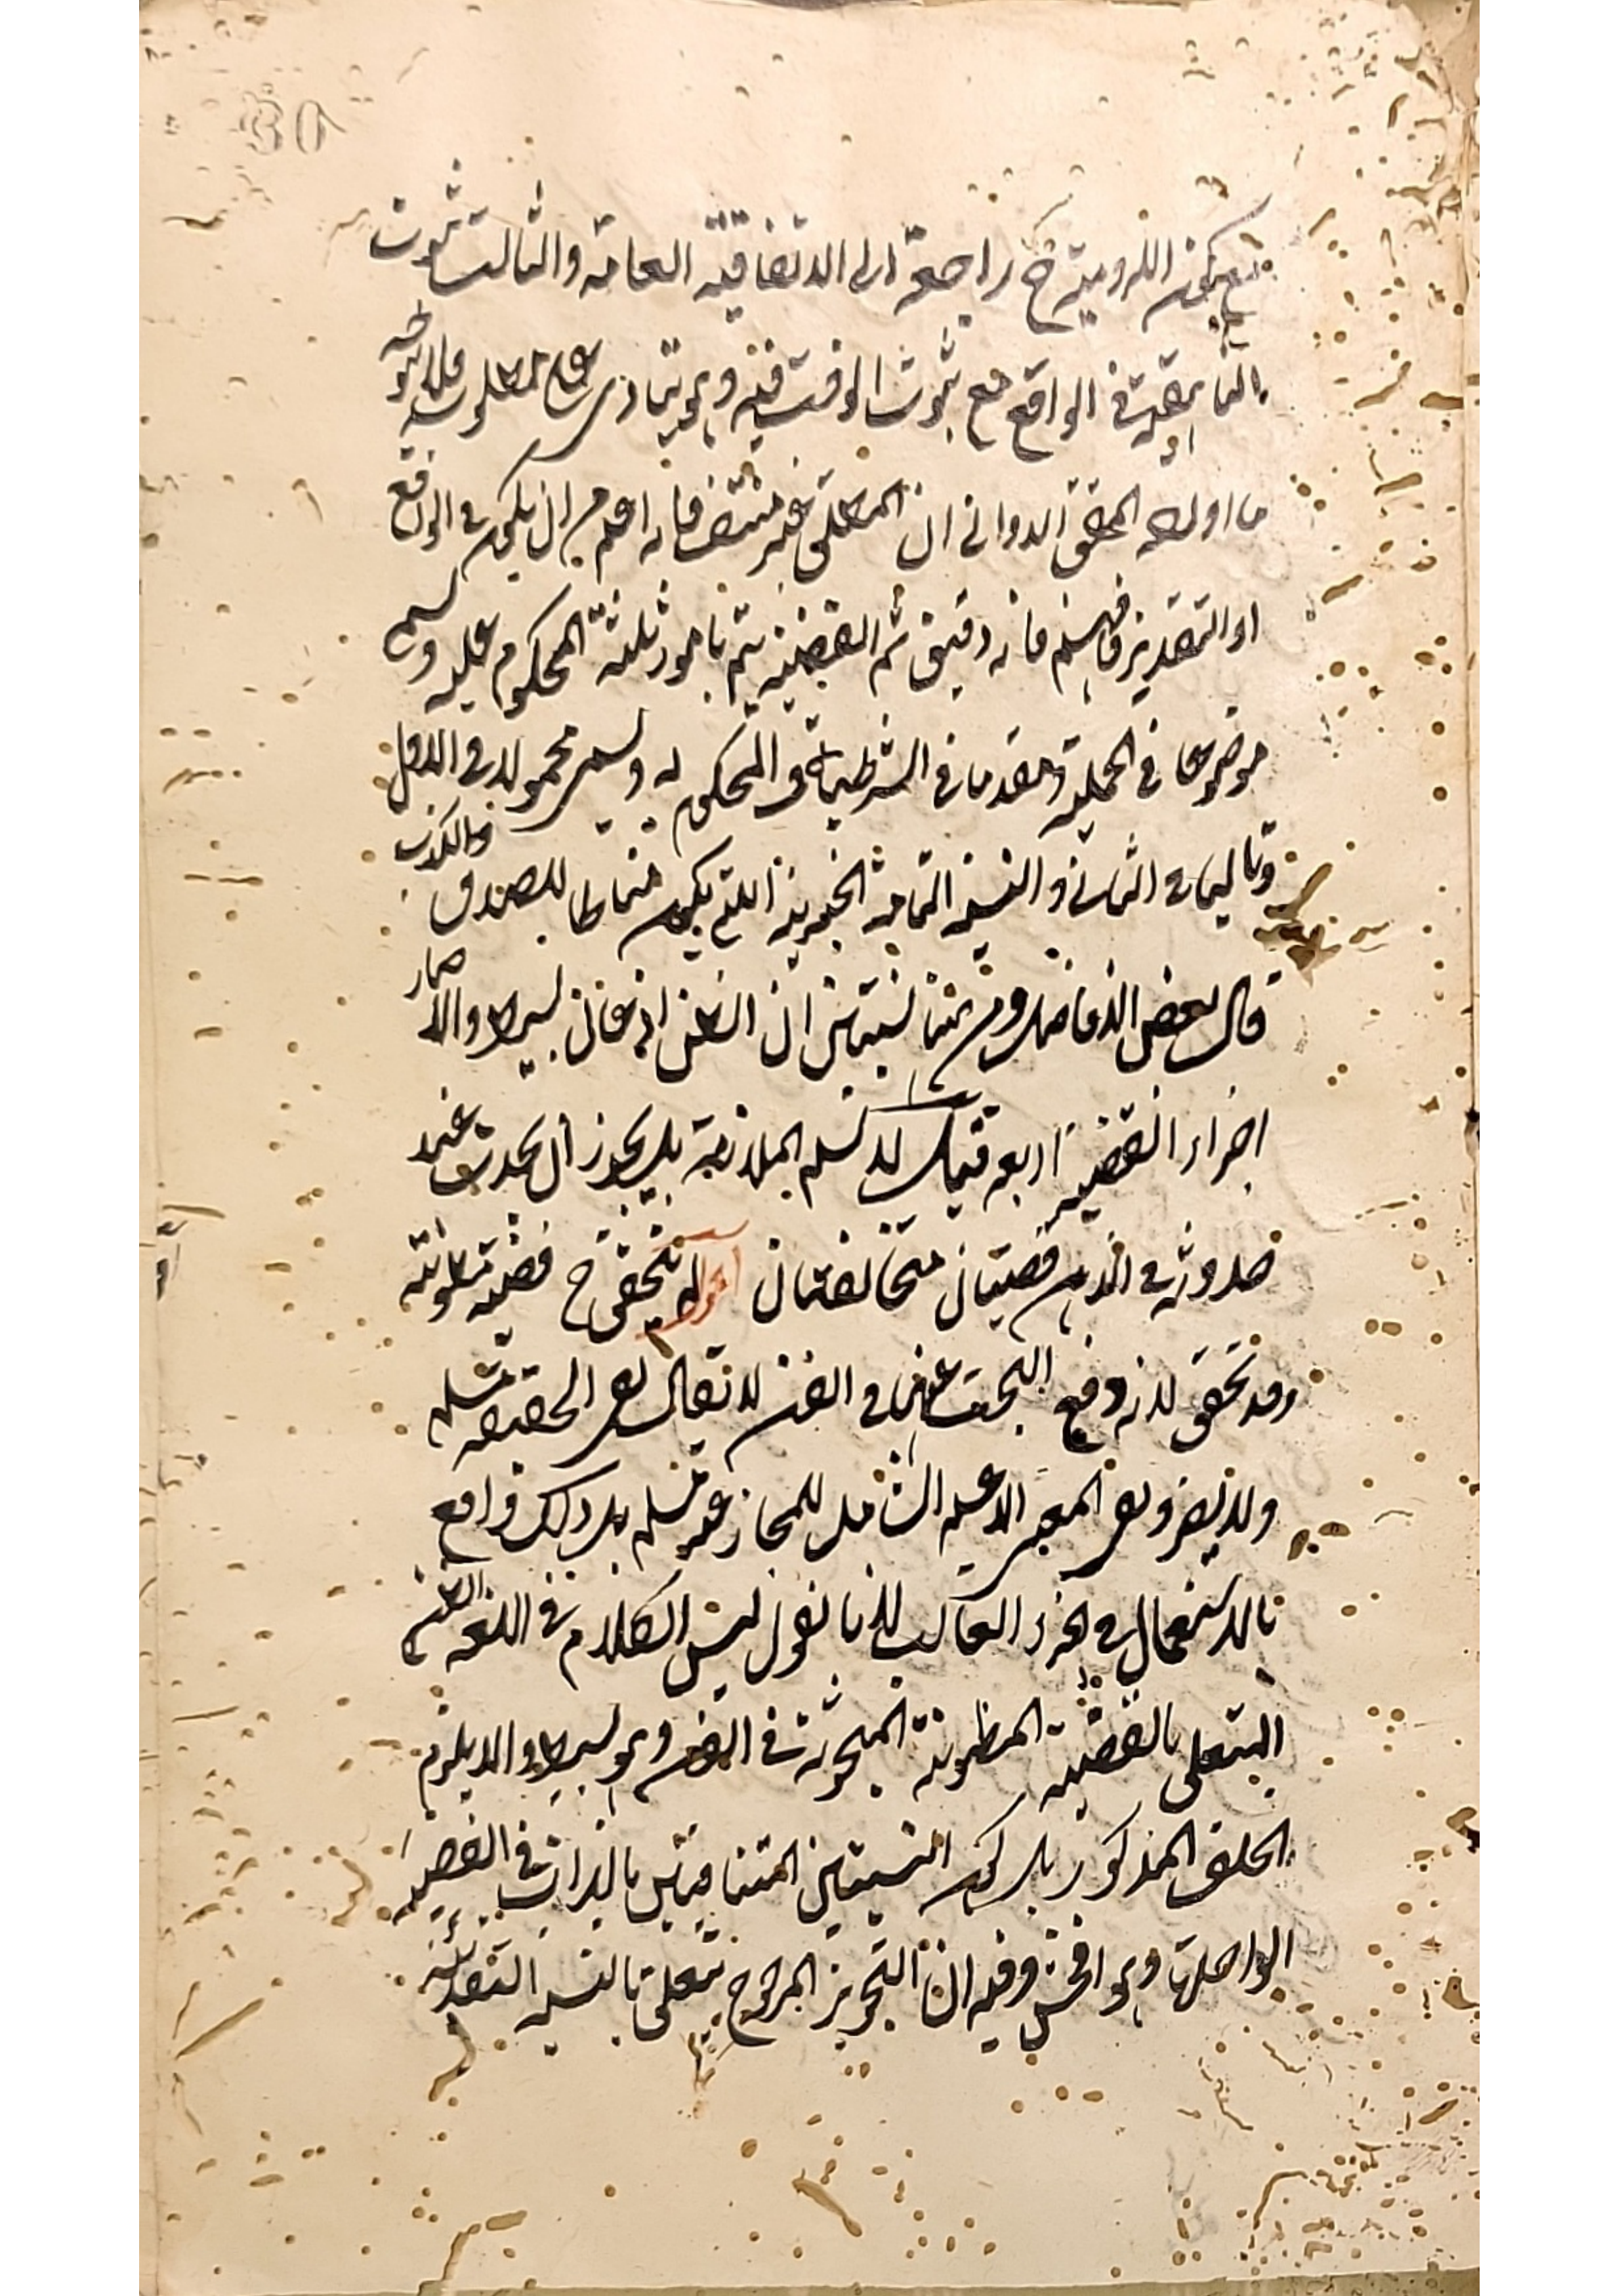 تكون اللزومية ح راجعة الى الاتفاقية العامة والثالث ثبوت
الناهقية في الواقع مع ثبوت الوقت فيه وهو ينادي على المطلوب فلا يتوجه
ما اورده المحقق الدواني ان المطلق غير منتف فانه اعم من ان يكون في الواقع
او التقدير فافهم فانه دقيق ثم القضية يتم بامور ثلثة المحكوم عليه ويسمى
موضوعا في الحملية ومقدما في الشرطية والمحكوم به ويسمى محمولا في الاول
وتاليا في الثاني والنسبة التامة الخبرية اللتي يكون مناطا للصدق والكذب
قال بعض الافاضل ومن هنا يستبين ان الظن اذعان بسيط والا صار
اجزاء القضية اربعة قيل لا نسلم الملازمة بل يجوز ان يحدث عند
حدوثه في الذهن قضيتان متخالفتان اقول لا يتحقق ح قضية مظنونة
وقد تحقق لانه وقع البحث عنها في الفن لا يقال نفى الحقيقة مسلم
ولا يضر ونفى المعنى الاعم الشامل للمجاز غير مسلم بل ذلك واقع
بالاستعمال في الجزء الغالب لانا نقول ليس الكلام في اللغة الظن
المتعلق بالقضية المظنونة المبحوثة في الفن وهو بسيط والا يلزم
الخلف المذكور بل كون النسبتين المتنافيتين بالذات في القضية
الواحدة وهو افحش وفيه ان التجويز المرجوح يتعلق بالنسبة التقييدية